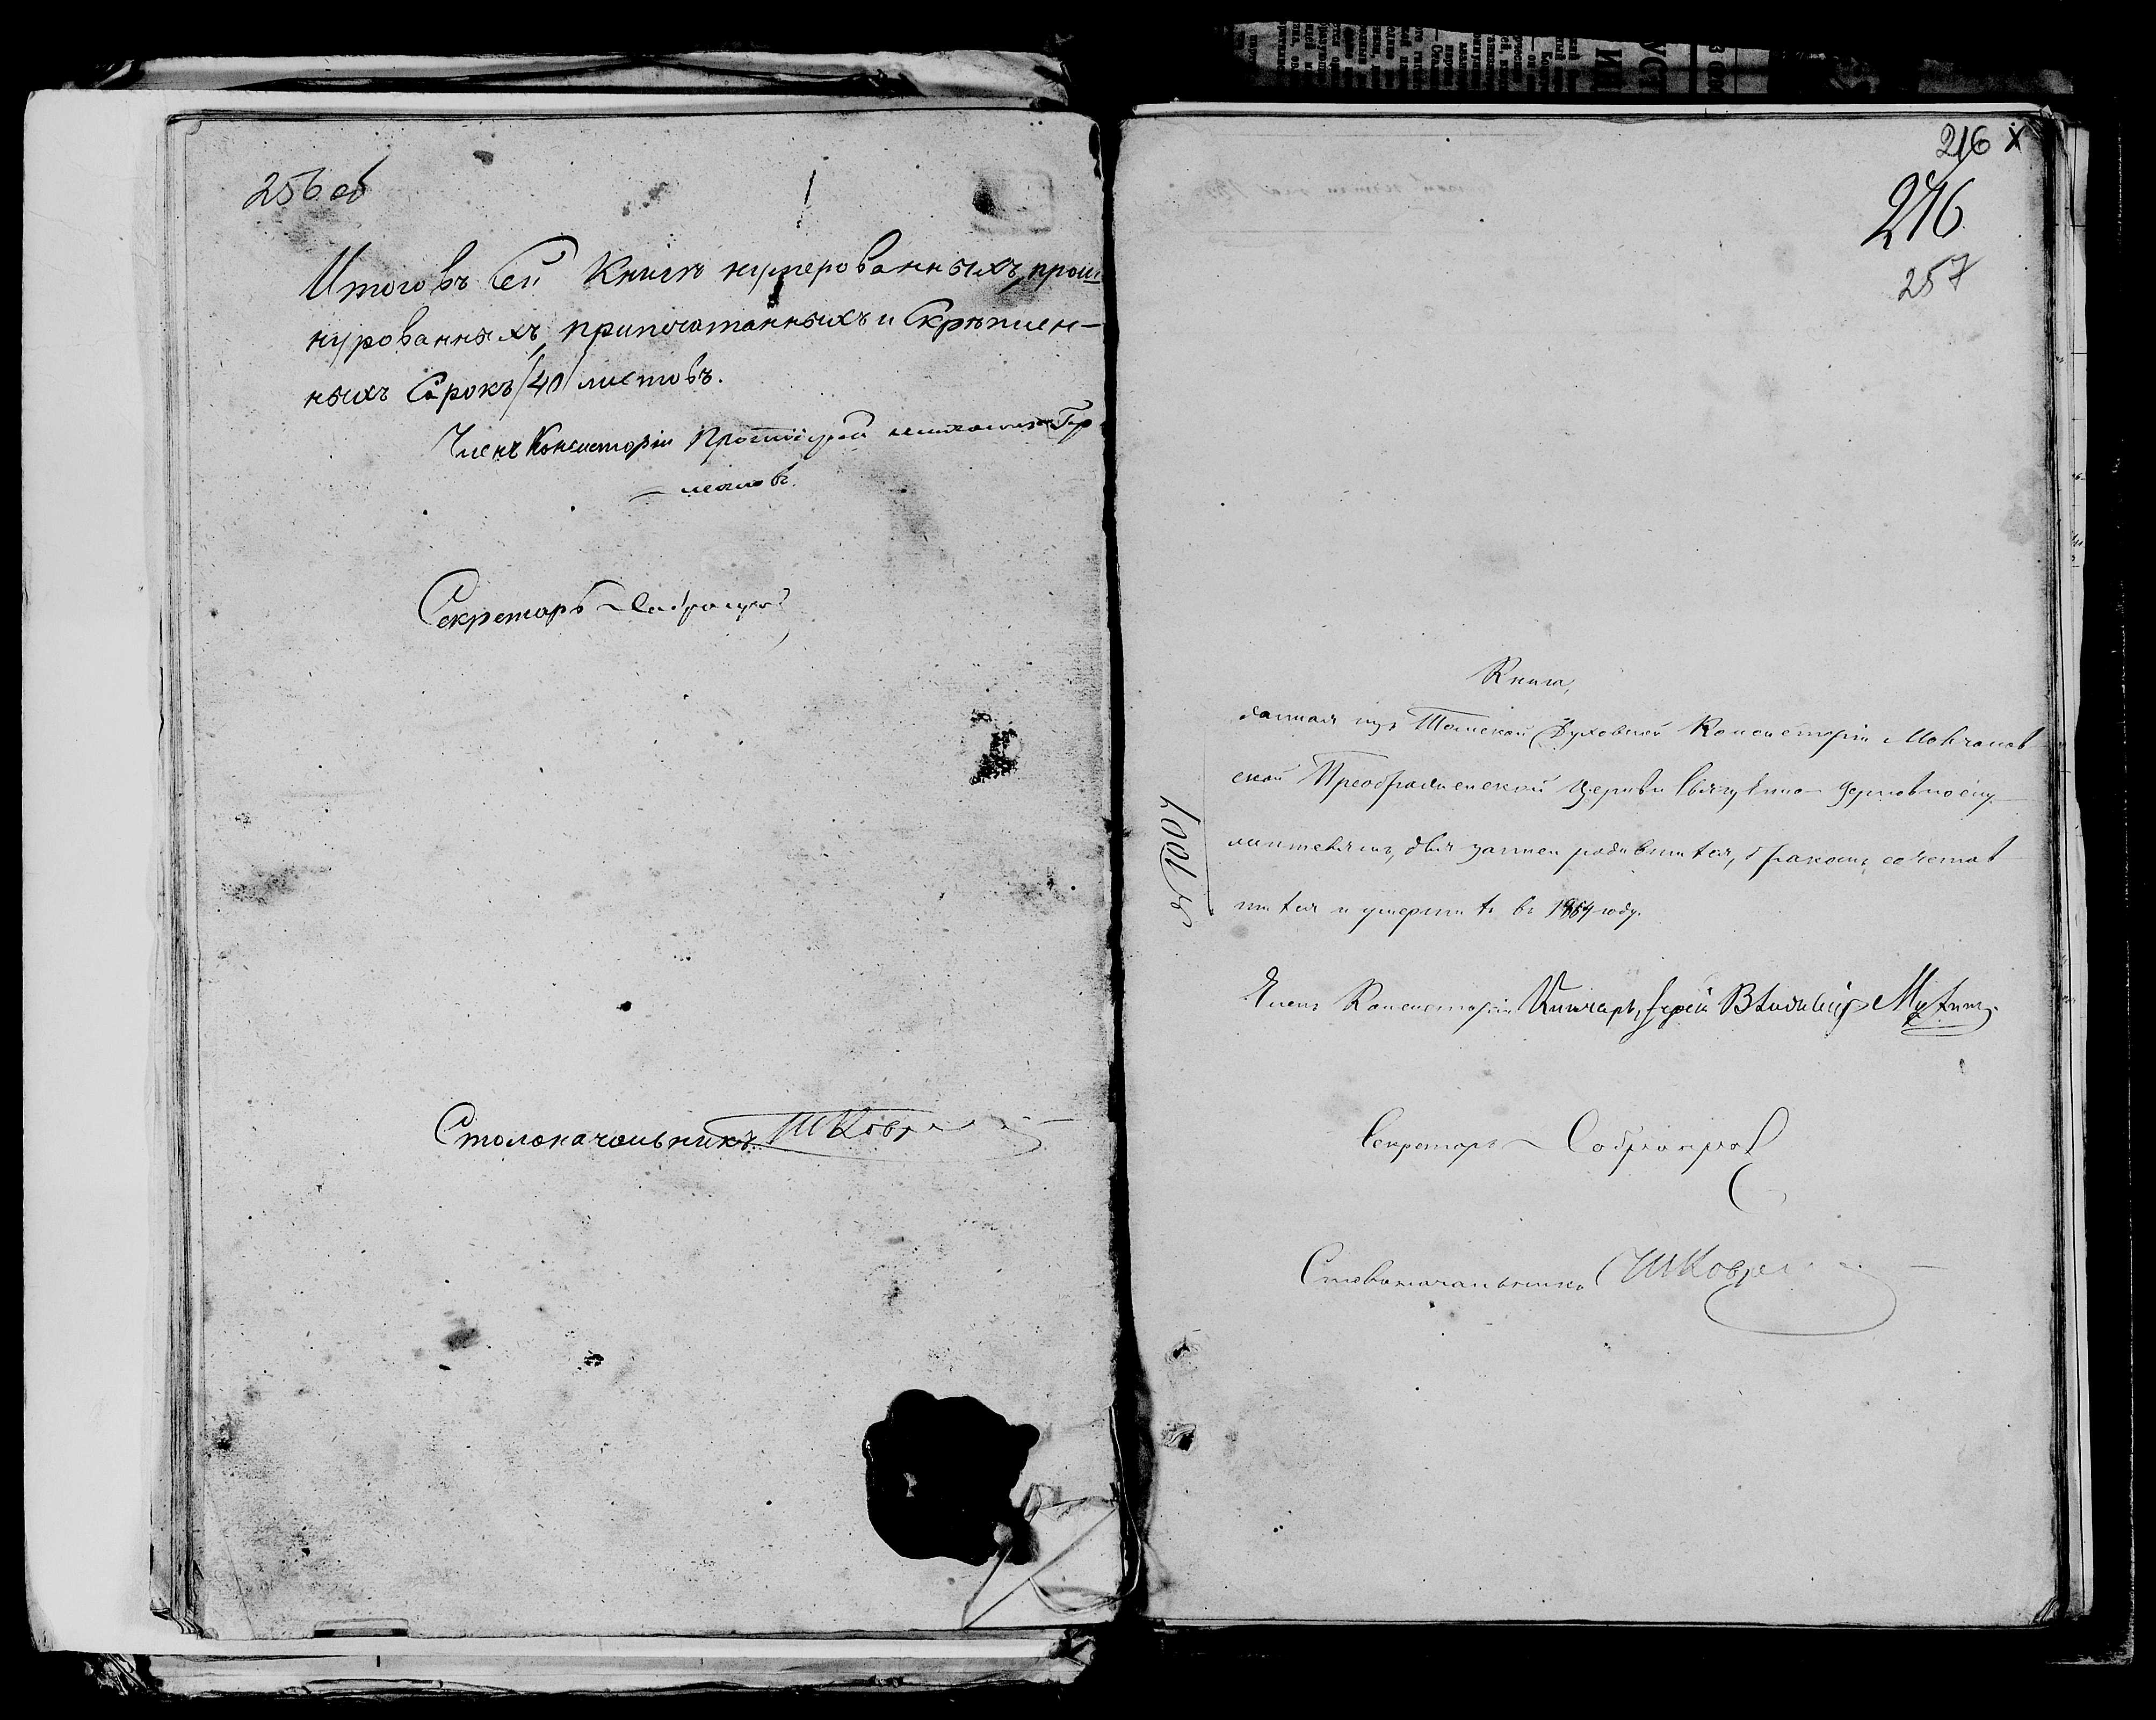 256 об
Итого въ сей Книгѣ нумерованныхъ, прош-
нурованныхъ, припечатанныхъ и Скрѣплен-
ныхъ Сорокъ /40/ листовъ.
Членъ Консисторіи Протоіерей
Секретарь
Столоначальникъ
216 X
216
257
Книга,
данная изъ Томской Духовной Консисторіи Молчанов
ской Преображенской церкви Священно-церковнослу-
жителямъ, для записи родившихся, бракомъ сочетав
шихся и умершихъ въ 1864 году.
Членъ Консисторіи Ключарь, Іерей Владиміръ
Секретарь
Столоначальникъ